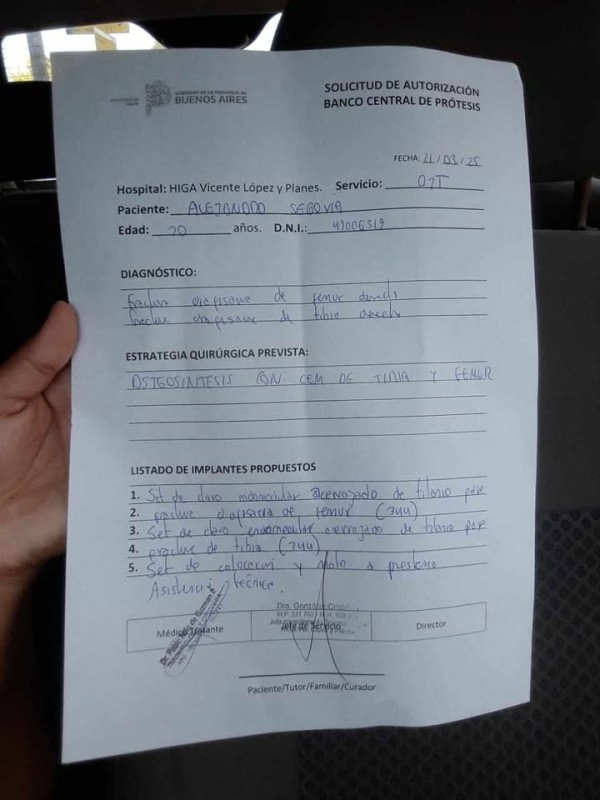 GOBIERNO DE LA PROVINCIA DE
BUENOS AIRES
SOLICITUD DE AUTORIZACIÓN
BANCO CENTRAL DE PRÓTESIS
FECHA: 21/03/25
Hospital: HIGA Vicente López y Planes. Servicio: OyT
Paciente: ALEJANDRO SEGOVIA
Edad: 20 años. D.N.I.: 49006519
DIAGNÓSTICO:
fractura diafisaria de femur
fractura diafisaria de tibia
ESTRATEGIA QUIRÚRGICA PREVISTA:
OSTEOSINTESIS CON CEM DE TIBIA Y FEMUR
LISTADO DE IMPLANTES PROPUESTOS
1. Set de clavo endomedular acerrojado de titanio para
2. fractura diafisaria de femur (344)
3. Set de clavo endomedular acerrojado de titanio para
4. fractura de tibia (344)
5. Set de colocacion y
Asistencia técnica.
Médico Tratante
Jefe de Servicio
Director
Paciente/Tutor/Familiar/Curador